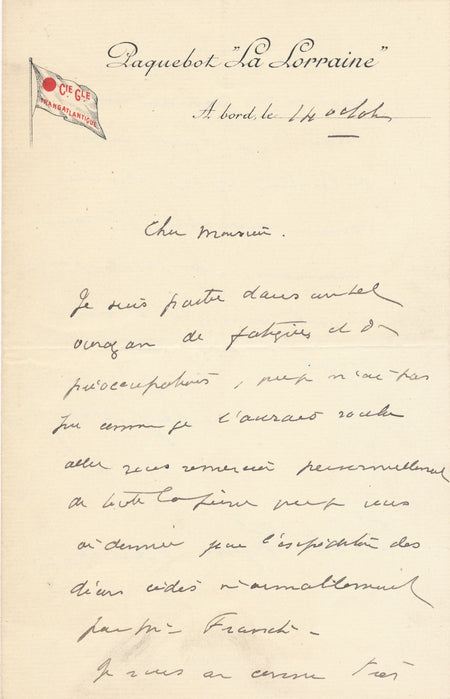 Paquebot "La Lorraine"
Cie Gle
TRANSATLANTIQUE
A bord, le 14 octob
Cher Monsieur.
Je suis partie dans un tel
ouragan de fatigues et de
préoccupations, que je n'ai pas
pu comme je l'aurais voulu
aller vous remercier personnellement
de toute la peine que je vous
ai donnée pour l'expédition des
décors cédés
par Mr
Je vous en
très